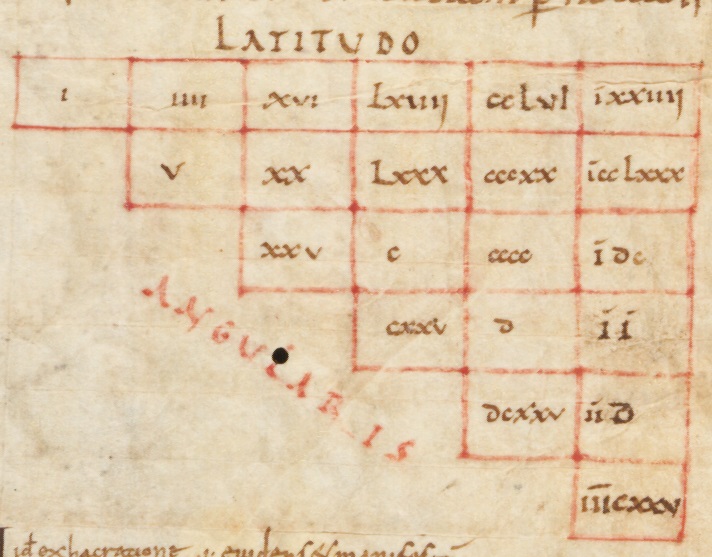 LATITUDO
ı ıııı xvı Lxıııȷ ccLvı īxxıııȷ
v xx Lxxx cccxx īccLxxx
xxv c cccc īdc
cxxv d īī
dcxxv īīd
īīīcxxv
ANGULARIS